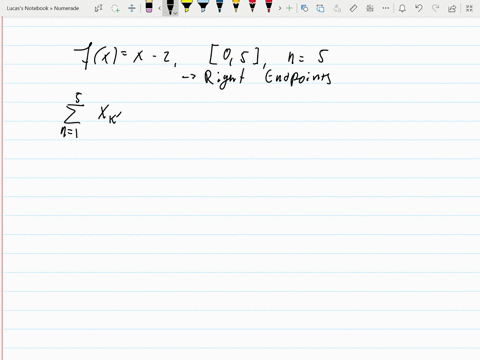 Lucas's Notebook » Numerade
f(x) = x - 2, [0, 5], n = 5
→ Right Endpoints
5
∑ x_k
n=1